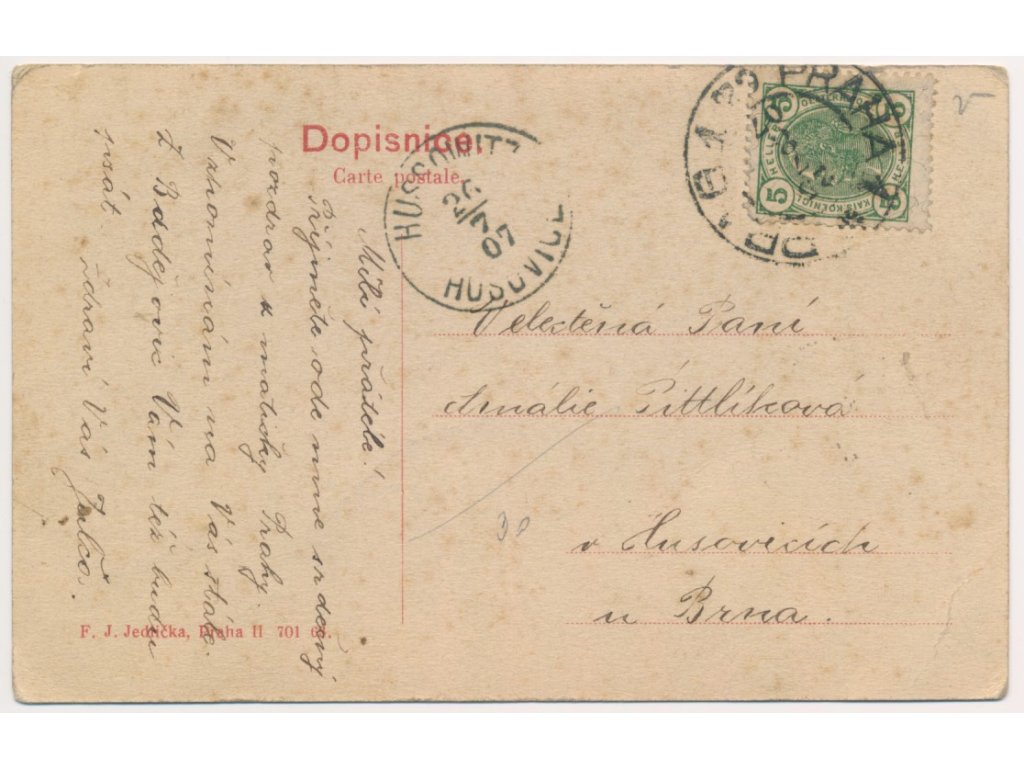 Dopisnice.
Carte postale.
PRAHA
PRAG
HUSSOWITZ
25/7 07
HUSOVICE
5 HELLER 5
KAIS. KOENIGL.
Milí přátelé!
Přijměte ode mne srdečný
pozdrav z matičky Prahy.
Vzpomínám na Vás stále.
Z Budějovic Vám též budu
psát Zdraví Vás Julča.
Velectěná Paní
Amálie Pittlíková
v Husovicích
u Brna.
30
F. J. Jedlička, Praha II 701